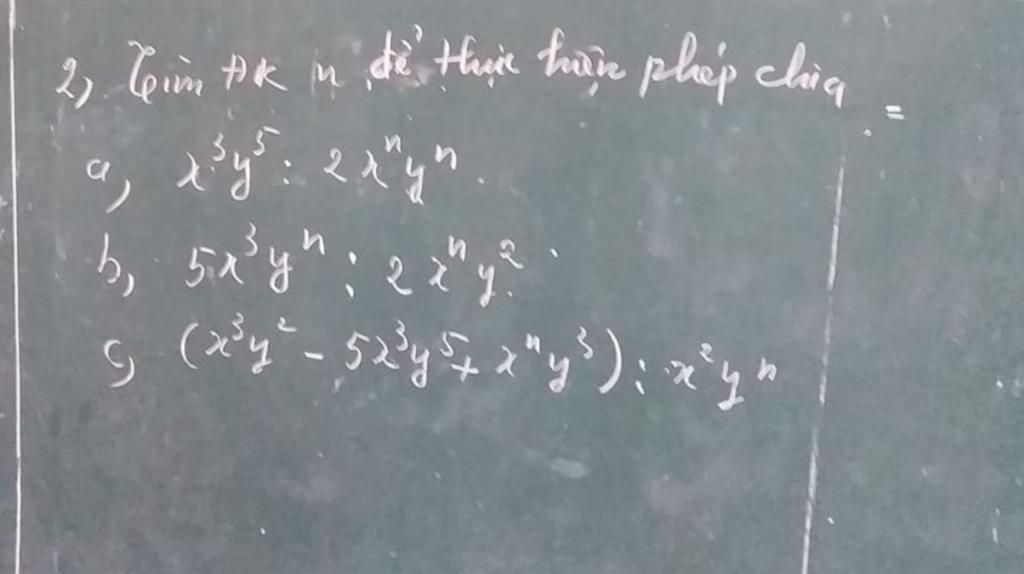 2, Tìm ĐK n để thực hiện phép chia
a, x³y⁵ : 2xⁿyⁿ.
b, 5x³yⁿ : 2xⁿy².
c, (x³y² - 5x³y⁵ + xⁿy³) : x²yⁿ